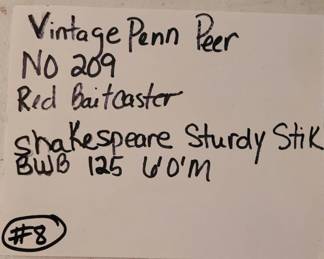 Vintage Penn Peer
NO 209
Red Baitcaster
Shakespeare Sturdy Stik
BWB 125 6'0"M
#8